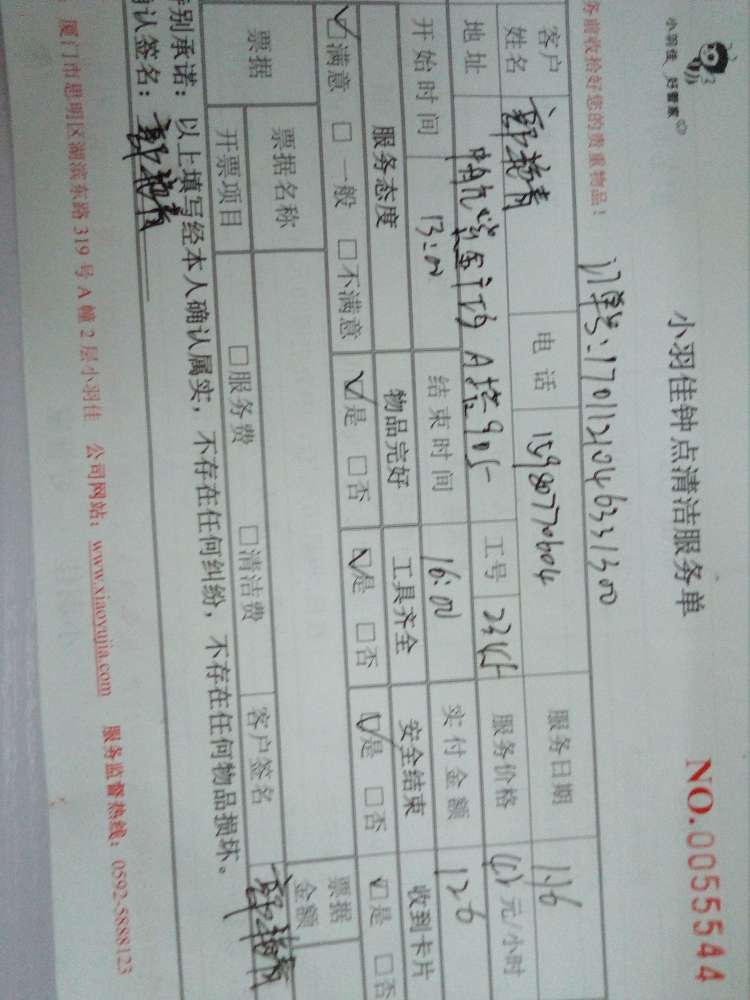 小羽佳 好管家
小羽佳钟点清洁服务单
NO.0055544
务前收拾好您的贵重物品！
订单号：17011210463331300
客户姓名 电话 15980770604 服务日期 1.16
地址 A塔905 工号 服务价格 元/小时
开始时间 13:00 结束时间 16:00 实付金额 126
服务态度 物品完好 工具齐全 安全结束 收到卡片
☑满意 □一般 □不满意 ☑是 □否 ☑是 □否 ☑是 □否 ☑是 □否
票据 票据名称 票据金额
开票项目 □服务费 □清洁费 客户签名
特别承诺：以上填写经本人确认属实，不存在任何纠纷，不存在任何物品损坏。
确认签名：
厦门市思明区湖滨东路319号A幢2层小羽佳 公司网站：www.xiaoyujia.com 服务监督热线：0592-5888123